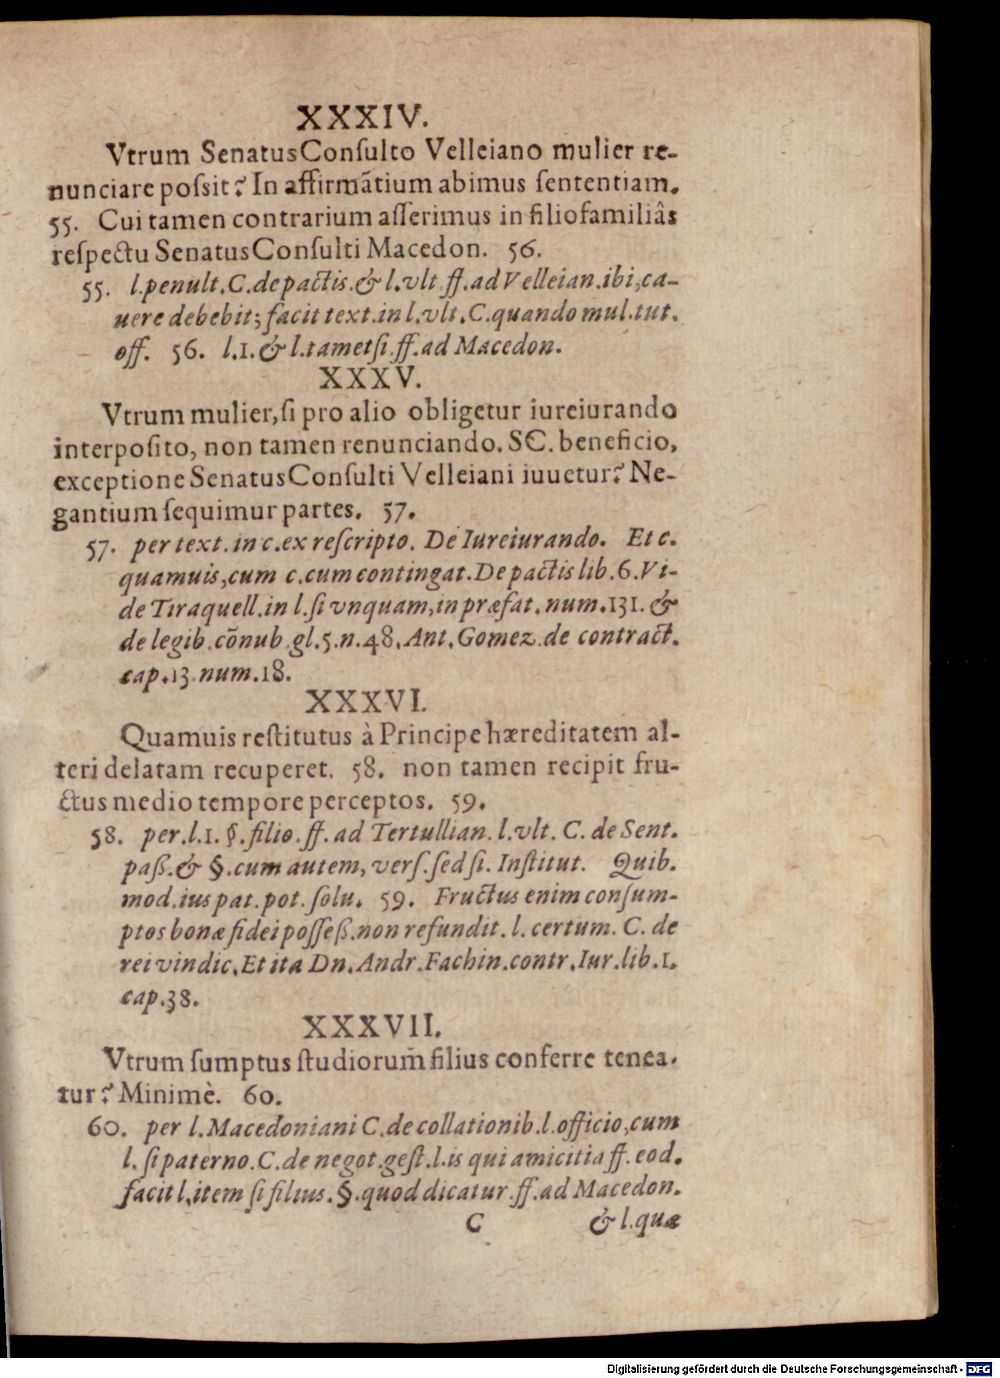 XXXIV.
Vtrum SenatusConſulto Velleiano mulier re-
nunciare poſsit? In affirmãtium abimus ſententiam.
55. Cui tamen contrarium aſſerimus in filiofamiliâs
reſpectu SenatusConſulti Macedon. 56.
55. l.penult.C.de pactis.& l.vlt ff.ad Velleian.ibi,ca-
uere debebit; facit text.in l.vlt.C.quando mul.tut.
off. 56. l.1.& l.tametſi.ff.ad Macedon.
XXXV.
Vtrum mulier,ſi pro alio obligetur iureiurando
interpoſito, non tamen renunciando. SC. beneficio,
exceptione SenatusConſulti Velleiani iuuetur? Ne-
gantium ſequimur partes. 57.
57. per text.in c.ex reſcripto. De Iureiurando. Et c.
quamuis,cum c.cum contingat.De pactis lib.6.Vi-
de Tiraquell.in l.ſi vnquam,in præfat.num.131.&
de legib.cõnub.gl.5.n.48.Ant.Gomez.de contract.
cap.13.num.18.
XXXVI.
Quamuis reſtitutus à Principe hæreditatem al-
teri delatam recuperet. 58. non tamen recipit fru-
ctus medio tempore perceptos. 59.
58. per.l.1.§.filio.ff.ad Tertullian.l.vlt.C.de Sent.
paß.& §.cum autem, verſ.ſed ſi. Inſtitut. Quib.
mod.ius pat.pot.ſolu. 59. Fructus enim conſum-
ptos bonæ fidei poſſeß.non refundit.l.certum.C.de
rei vindic.Et ita Dn.Andr.Fachin.contr.Iur.lib.1.
cap.38.
XXXVII.
Vtrum ſumptus ſtudiorum̃ filius conferre tenea-
tur? Minimè. 60.
60. per l.Macedoniani C.de collationib.l.officio,cum
l.ſi paterno.C.de negot.geſt.l.is qui amicitia ff.eod.
facit l.item ſi filius.§.quod dicatur.ff.ad Macedon.
C & l.quæ
Digitalisierung gefördert durch die Deutsche Forschungsgemeinschaft - DFG